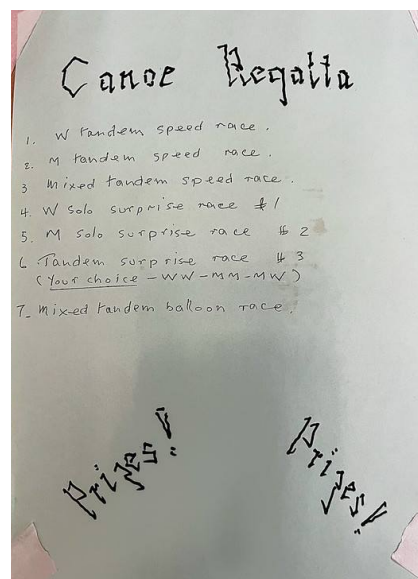 Canoe Regatta
1. W tandem speed race.
2. M tandem speed race.
3 Mixed tandem speed race.
4. W solo surprise race #1
5. M solo surprise race #2
6 Tandem surprise race #3
(Your choice - WW - MM - MW)
7. Mixed tandem balloon race.
Prizes!
Prizes!